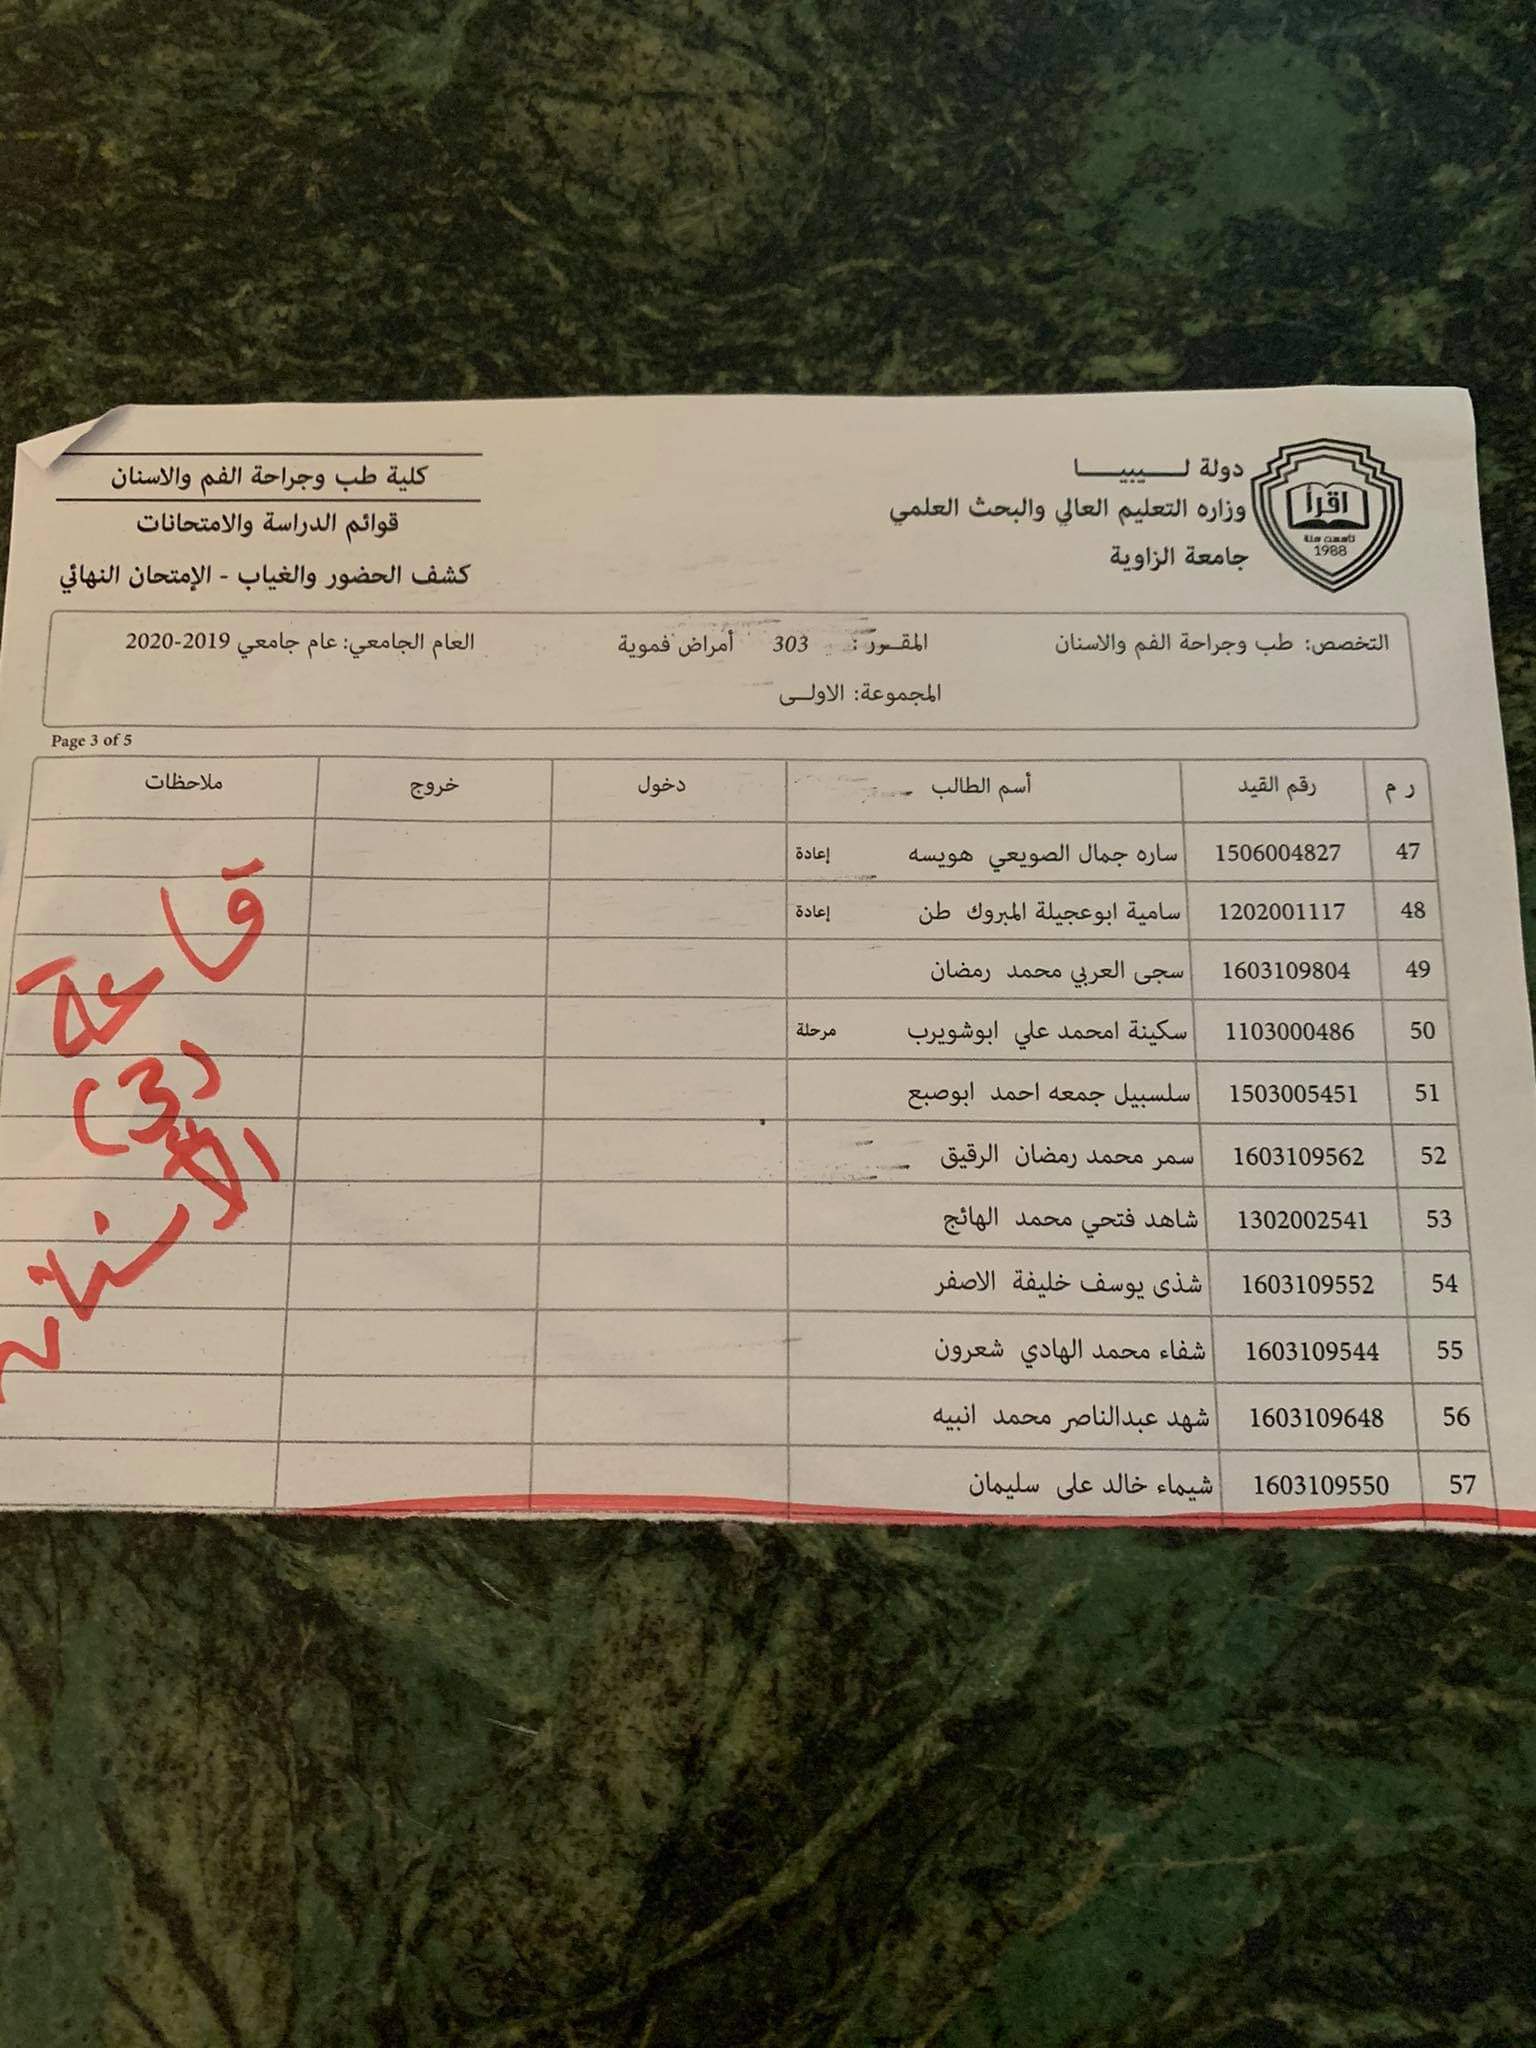 دولة لـــيبيـــا
وزاره التعليم العالي والبحث العلمي
جامعة الزاوية
اقرأ
تأسست سنة
1988
كلية طب وجراحة الفم والاسنان
قوائم الدراسة والامتحانات
كشف الحضور والغياب - الإمتحان النهائي
التخصص: طب وجراحة الفم والاسنان المقــرر : 303 أمراض فموية العام الجامعي: عام جامعي 2019-2020
المجموعة: الاولــى
Page 3 of 5
ر م رقم القيد أسم الطالب دخول خروج ملاحظات
47 1506004827 ساره جمال الصويعي هويسه إعادة
48 1202001117 سامية ابوعجيلة المبروك طن إعادة
49 1603109804 سجى العربي محمد رمضان
50 1103000486 سكينة امحمد علي ابوشويرب مرحلة
51 1503005451 سلسبيل جمعه احمد ابوصبع
52 1603109562 سمر محمد رمضان الرقيق
53 1302002541 شاهد فتحي محمد الهائج
54 1603109552 شذى يوسف خليفة الاصفر
55 1603109544 شفاء محمد الهادي شعرون
56 1603109648 شهد عبدالناصر محمد انبيه
57 1603109550 شيماء خالد على سليمان
قاعة
(3)